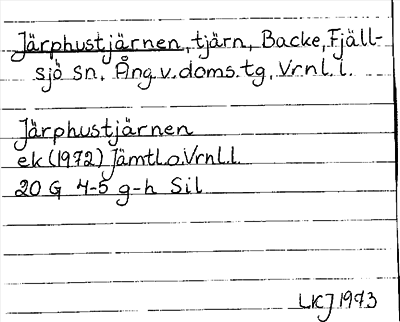 Järphustjärnen, tjärn, Backe, Fjäll-
sjö sn, Ång. v. doms. tg, Vrnl. l.
Järphustjärnen
ek (1972) Jämtl. o. Vrnl. l.
20 G 4-5 g-h Sil
LKJ 1973